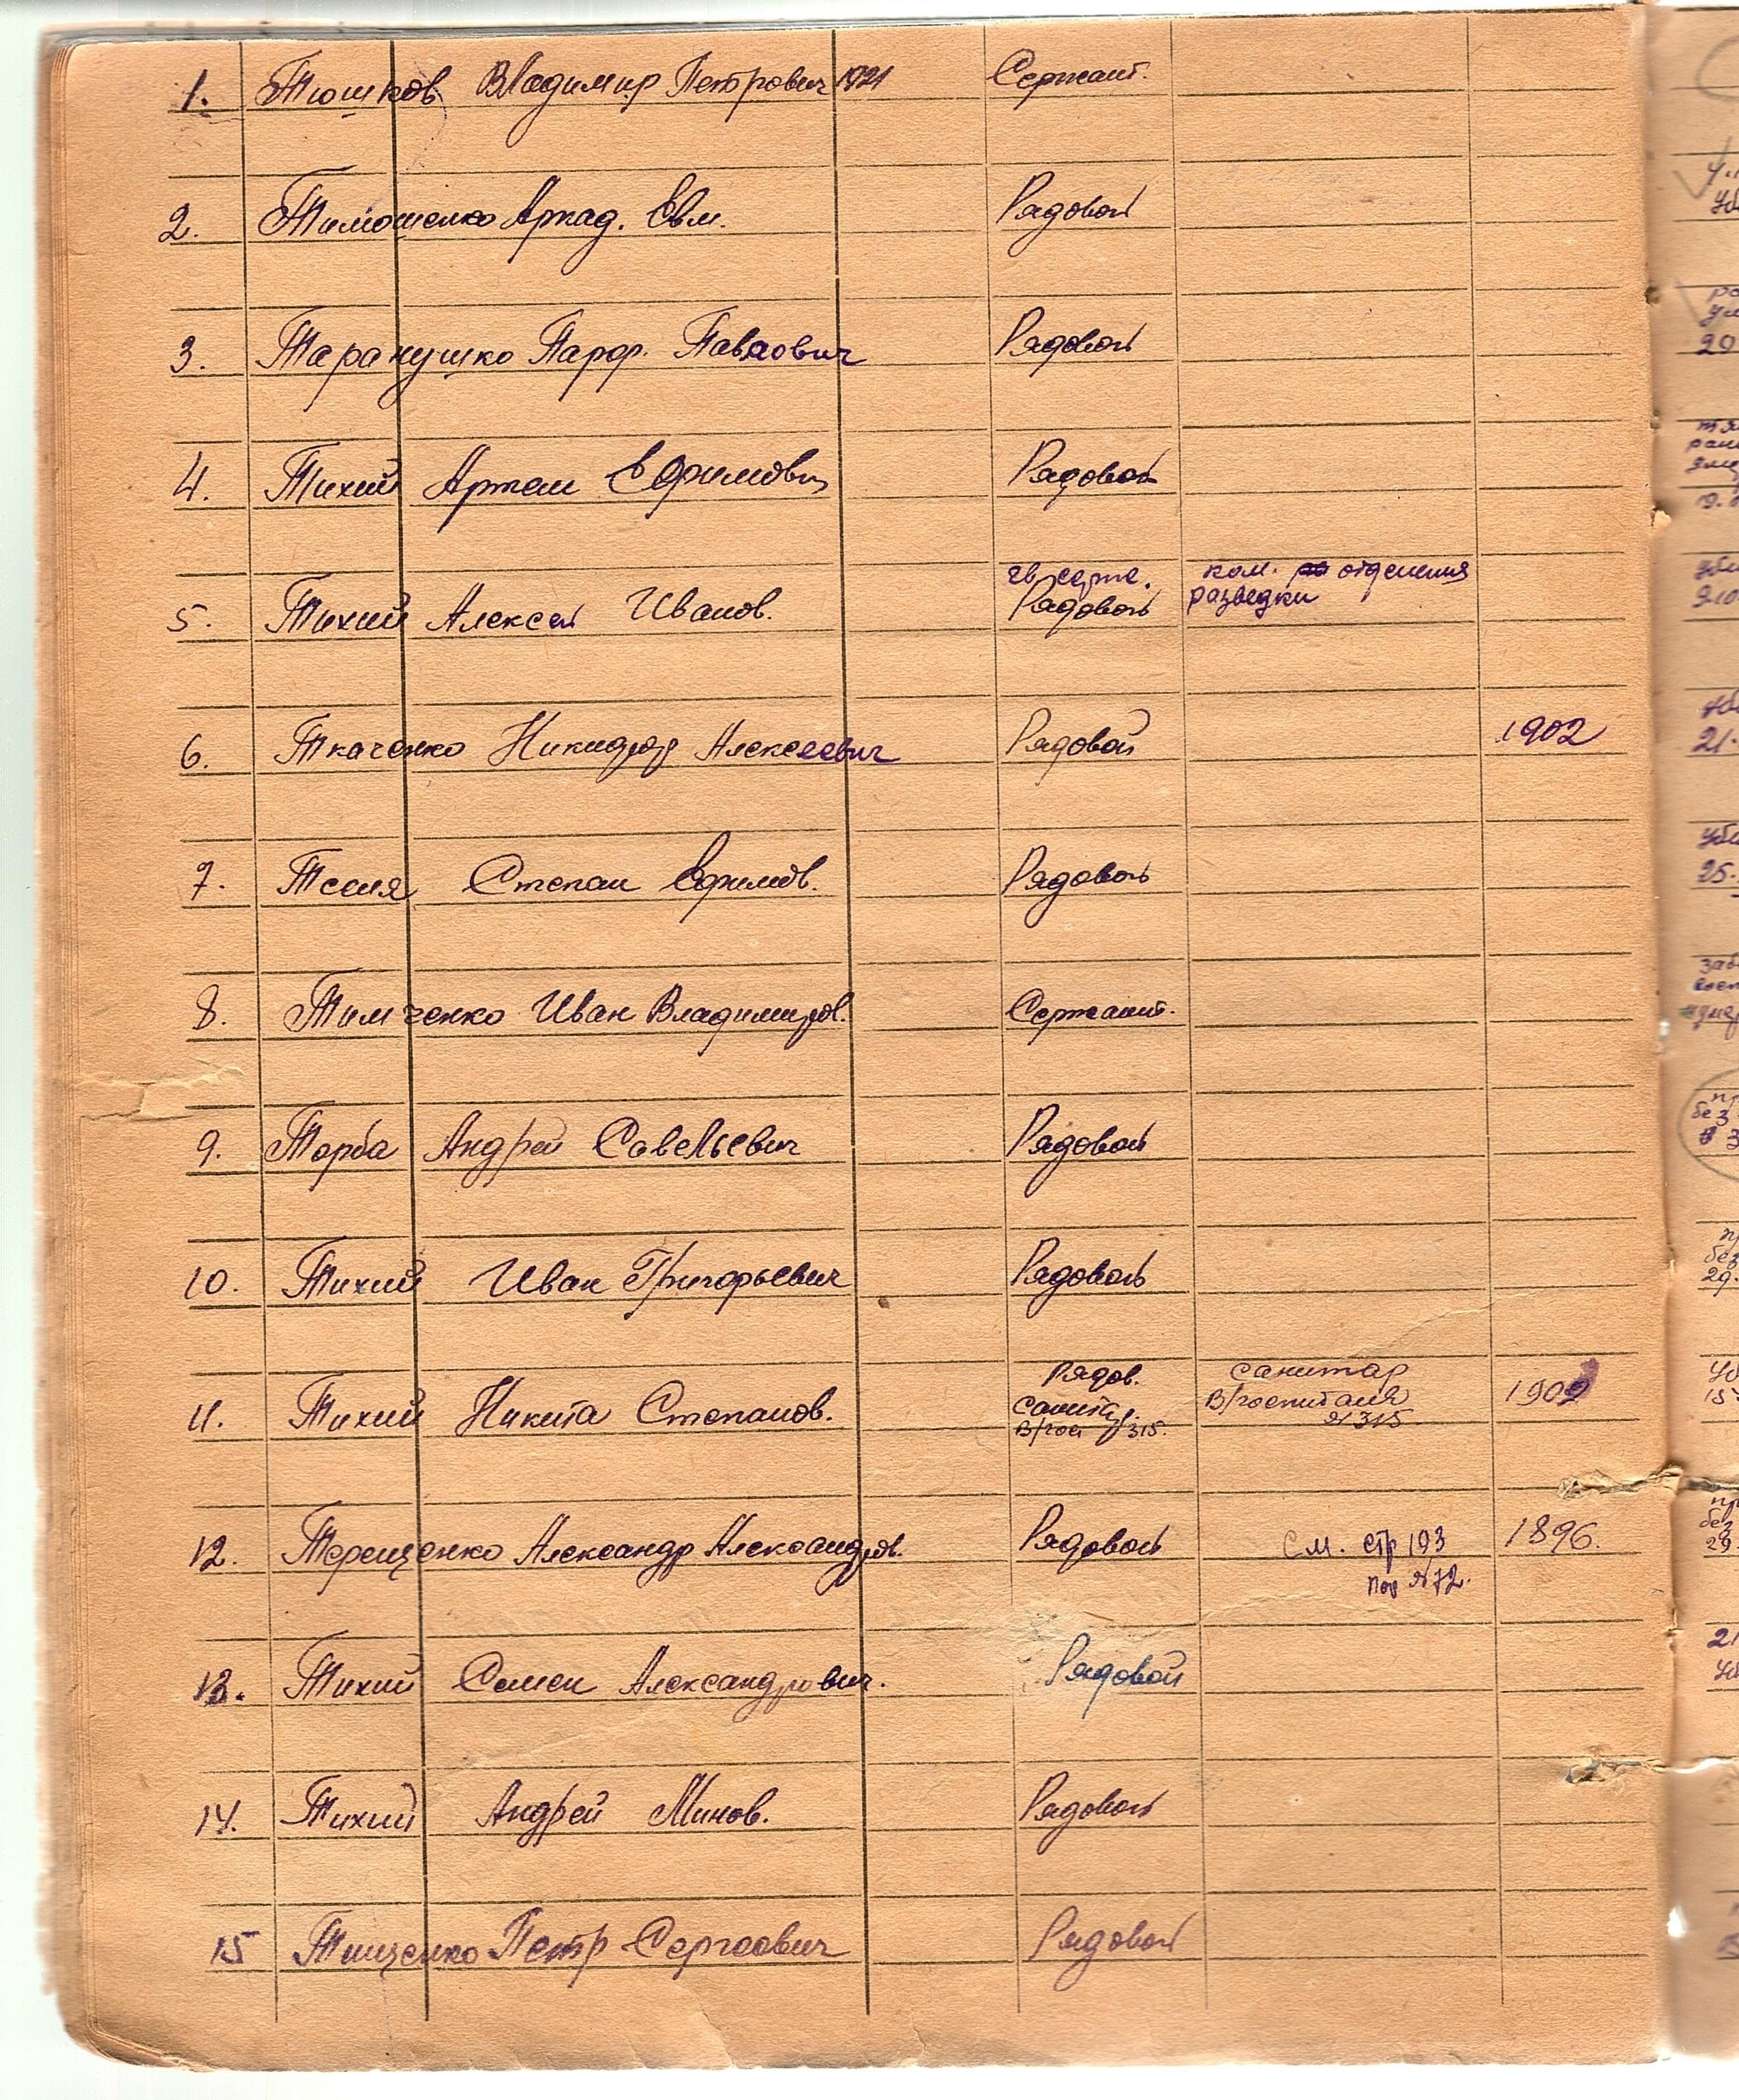 1. Тюшков Владимир Петрович 1921 Сержант.
2. Тимошенко Аркад. Евм. Рядовой
3. Таранушко Парф. Павлович Рядовой
4. Тихий Артем Ефимович Рядовой
гв. серж. ком. отделения
5. Тихий Алексей Иванов. Рядовой разведки
6. Ткаченко Никифор Алексеевич Рядовой 1902
7. Степан Ефимов. Рядовой
8. Тимченко Иван Владимиров. Сержант.
9. Торба Андрей Савельевич Рядовой
10. Тихий Иван Григорьевич Рядовой
Рядов. санитар
11. Тихий Никита Степанов. санитар В/госпиталя 1902
В/гос 315. № 315
12. Терещенко Александр Александров. Рядовой см. стр 193 1896.
пор № 72.
13. Тихий Семен Александрович. Рядовой
14. Тихий Андрей Минов. Рядовой
15 Тищенко Петр Сергеевич Рядовой